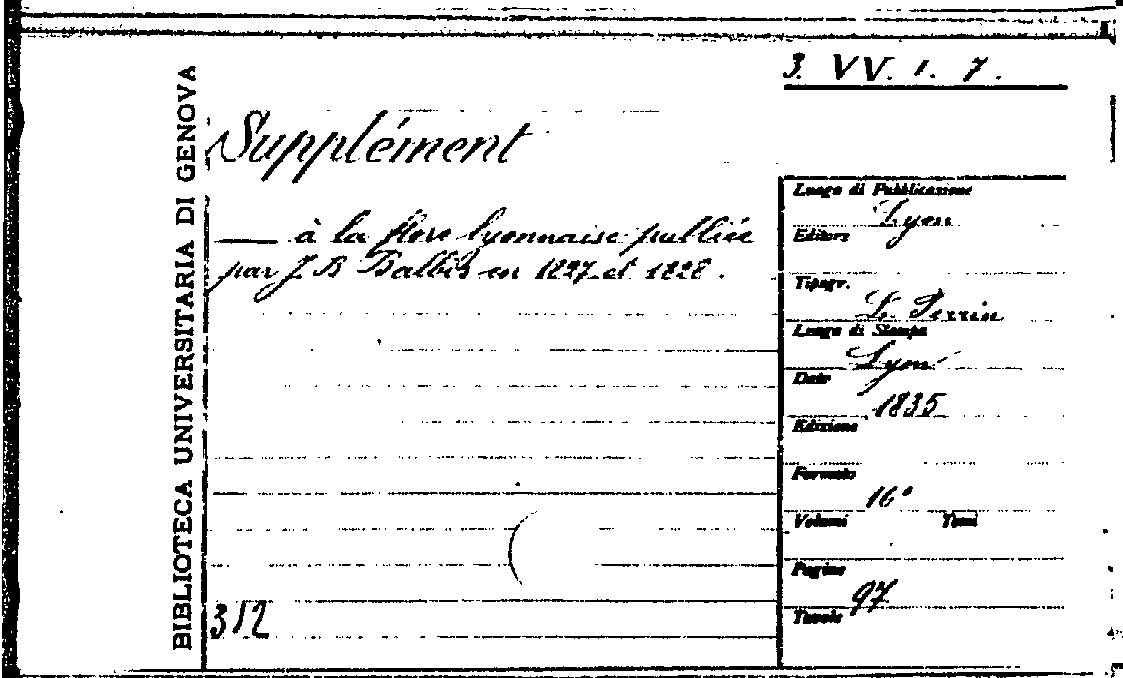 3. VV. 1. 7.
BIBLIOTECA UNIVERSITARIA DI GENOVA
Supplément
— à la flore lyonnaise publiée
par J. B Balbis en 1827 et 1828.
312
Luogo di Pubblicazione
Lyon
Editore
Tipogr.
L. Perrin
Luogo di Stampa
Lyon
Date
1835
Edizione
Formato
16°
Volumi Tomi
Pagine
97
Tavole